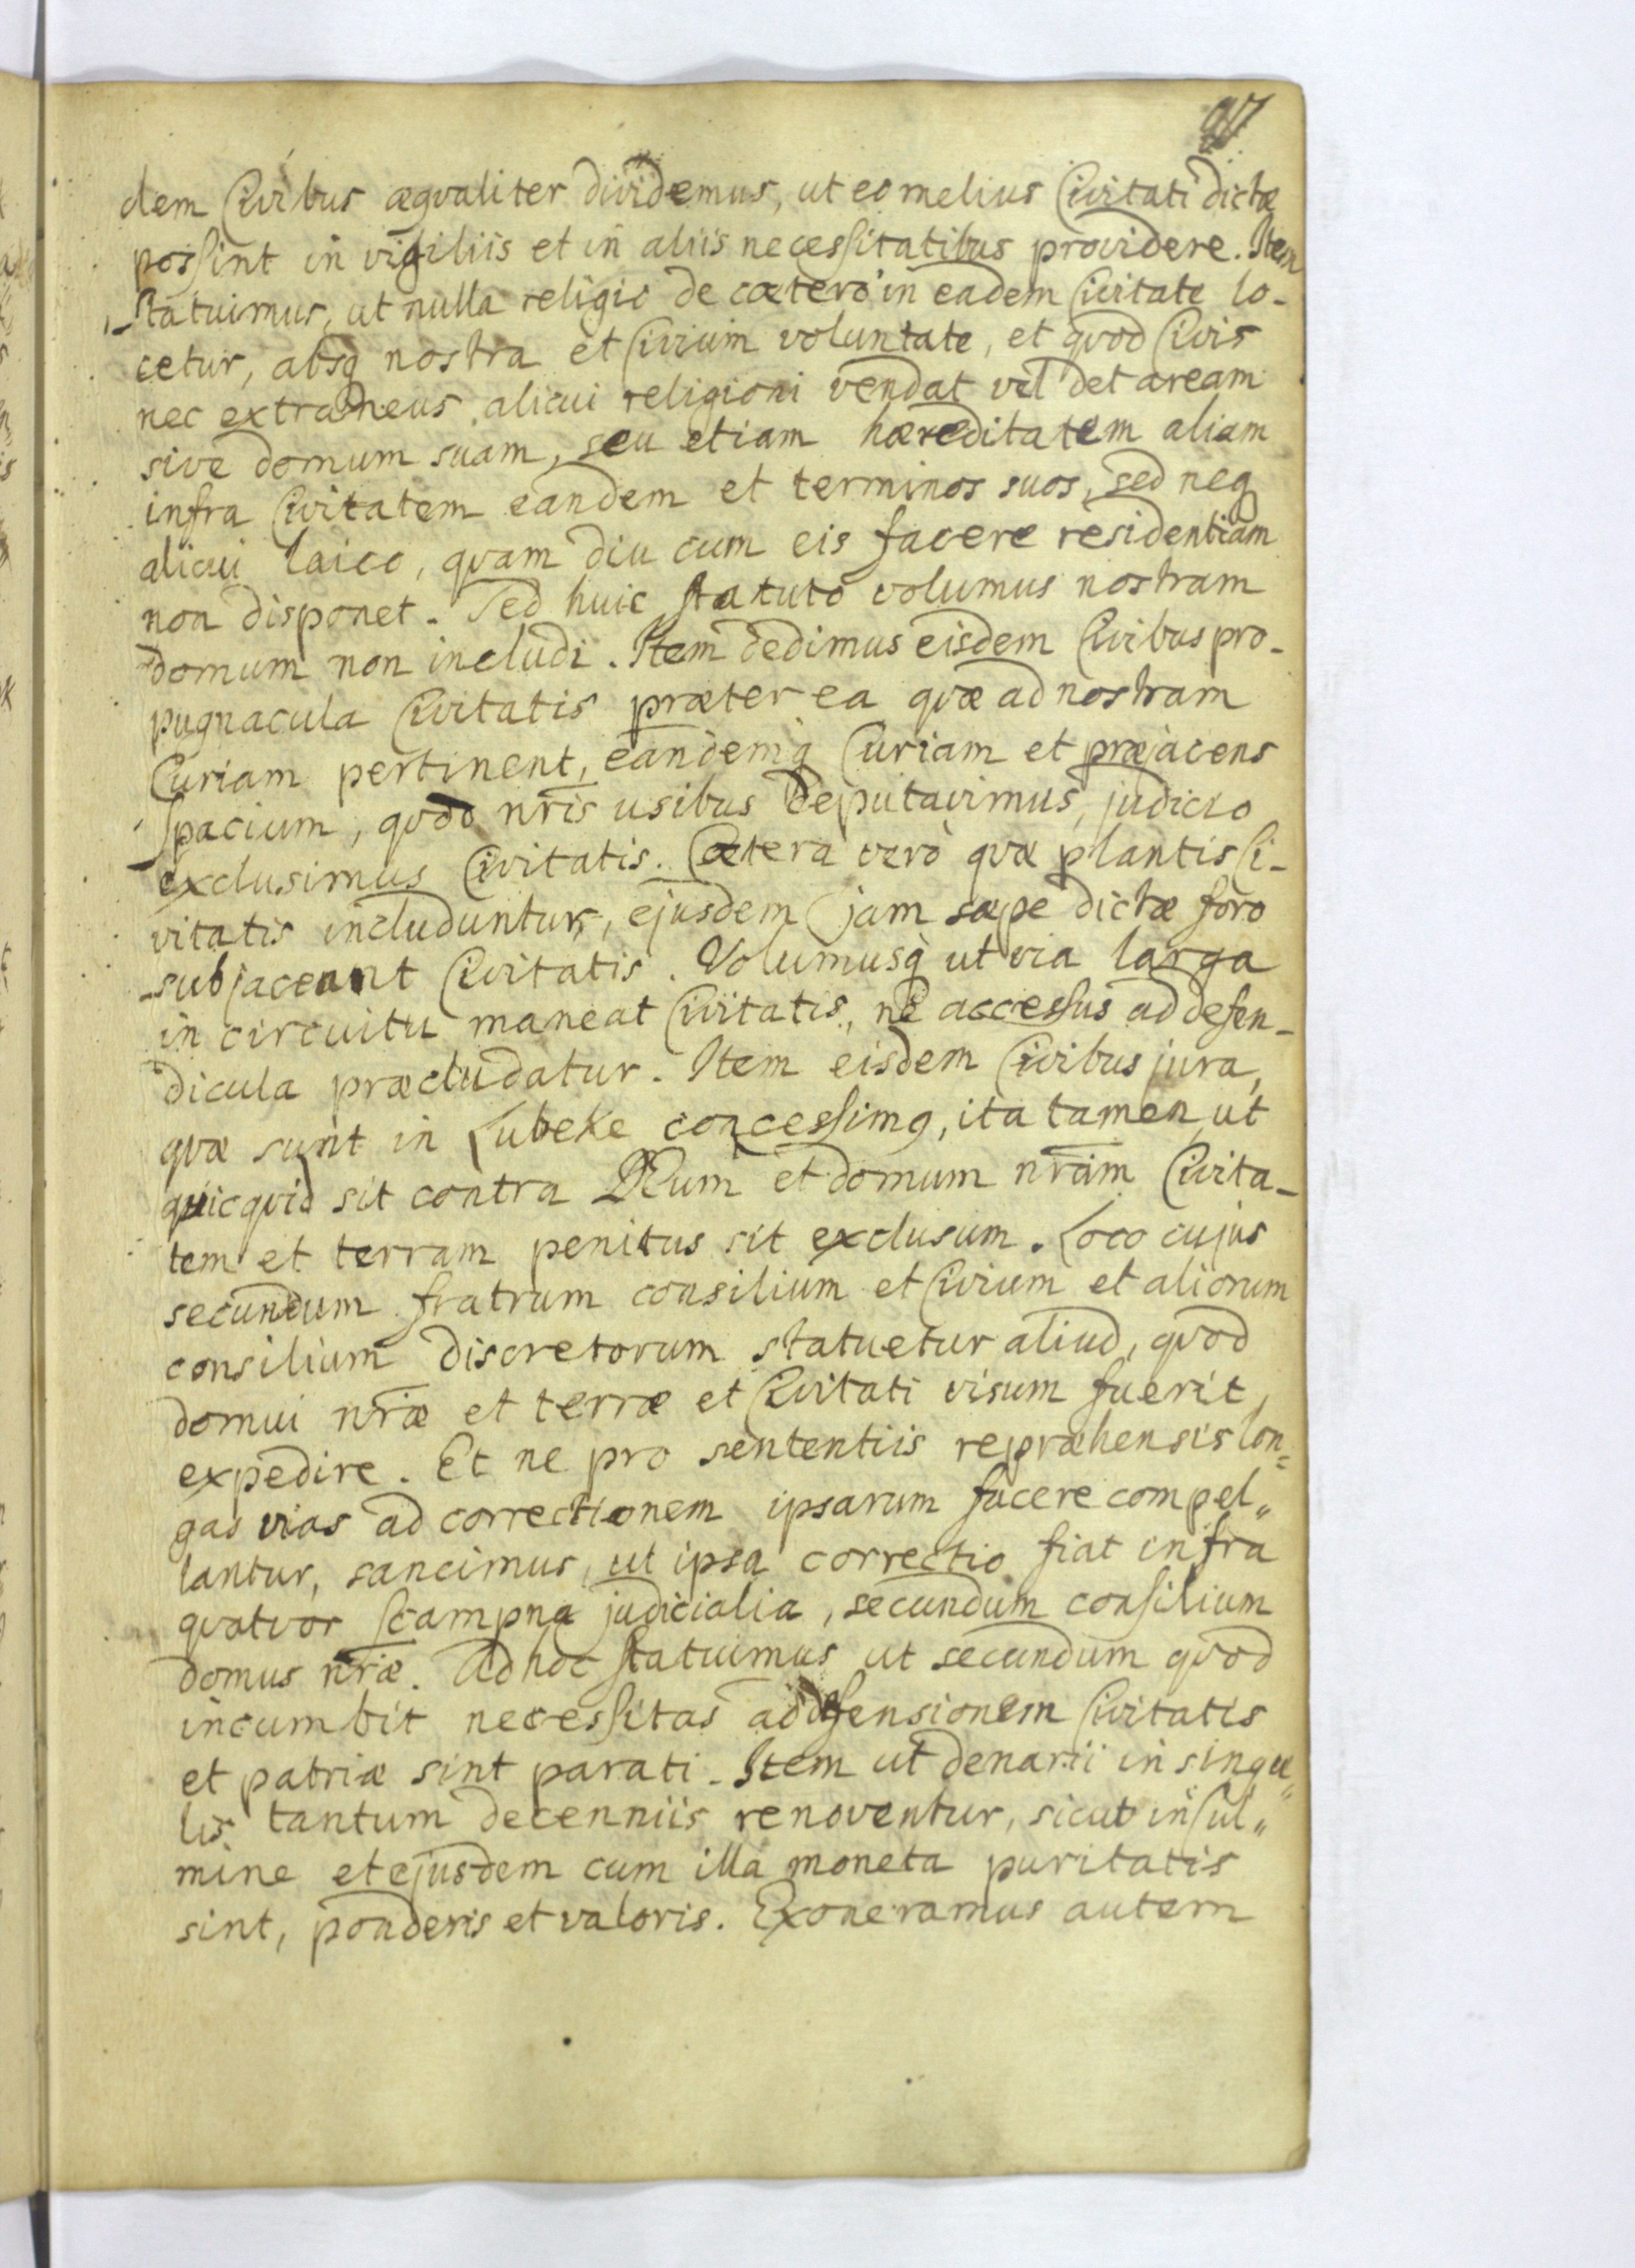 97
dem Civibus æqvaliter dividemus, ut eo melius Civitati dictæ
possint in vigiliis et in aliis necessitatibus providere. Item
statuimus, ut nulla religio de cætero in eadem Civitate lo-
cetur, absq nostra et Civium voluntate, et qvod Civis
nec extraneus alicui religioni vendat vel det aream
sive domum suam, seu etiam hæreditatem aliam
infra Civitatem eandem et terminos suos, sed neq
alicui laico, qvam diu cum eis facere residentiam
non disponet. Sed huic statuto volumus nostram
domum non includi. Item dedimus eisdem Civibus pro-
pugnacula Civitatis præter ea qvæ ad nostram
Curiam pertinent, eandemq Curiam et præjacens
spacium, qvod nr̄is usibus deputavimus, judicio
exclusimus Civitatis. Cætera verò qvæ plantis Ci-
vitatis includuntur, ejusdem jam sæpe dictæ foro
subjaceant Civitatis. Volumusq ut via larga
in circuitu maneat Civitatis, ne accessus ad defen-
dicula præcludatur. Item eisdem Civibus jura,
qvæ sunt in Lubeke concessimq, ita tamen, ut
qvicqvid sit contra DEum et domum nr̄am Civita-
tem et terram penitus sit exclusum. Loco cujus
secundum fratrum consilium et Civium et aliorum
consilium discretorum statuetur aliud, qvod
domui nr̄æ et terræ et Civitati visum fuerit,
expedire. Et ne pro sententiis repræhensis lon=
gas vias ad correctionem ipsarum facere compel„
lantur, sancimus, ut ipsa correctio fiat infra
qvatvor scampna judicialia, secundum consilium
domus nr̄æ. Ad hoc statuimus ut secundum qvod
incumbit necessitas ad defensionem Civitatis
et patriæ sint parati. Item ut denarii in singu„
lis tantum decenniis renoventur, sicut in Cul„
mine et ejusdem cum illa moneta puritatis
sint, ponderis et valoris. Exoneramus autem